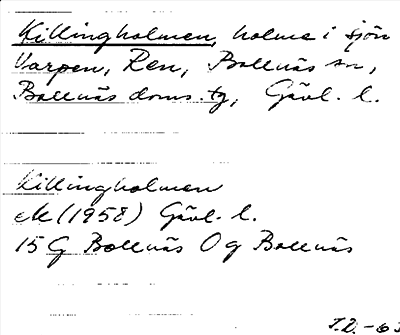 Killingholmen, holme i sjön
Varpen, Ren, Bollnäs sn,
Bollnäs doms.tg, Gävl. l.
Killingholmen
ek (1958) Gävl. l.
15 G Bollnäs O g Bollnäs
T.D. -63